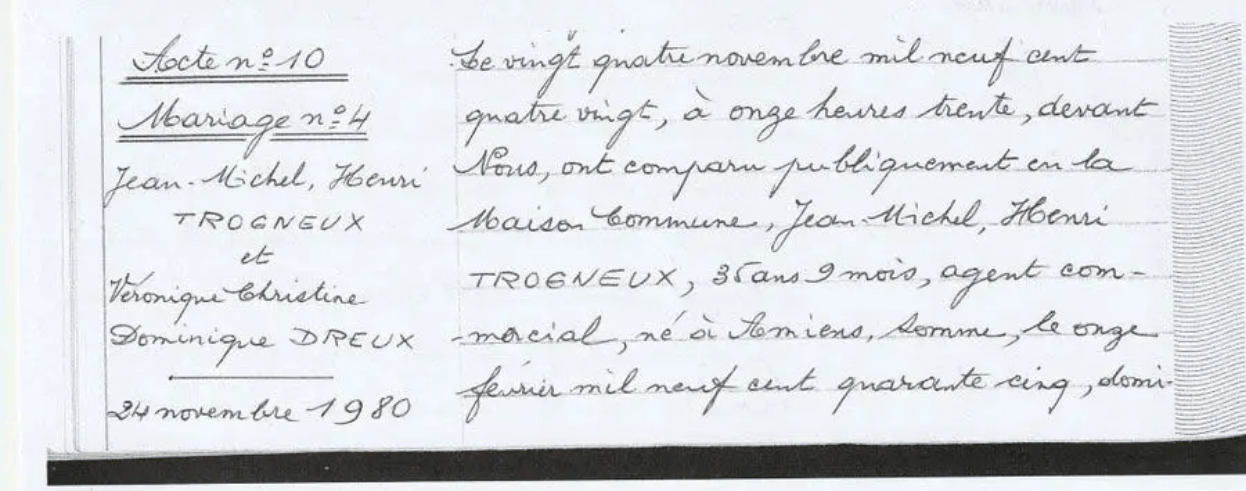 Acte nº 10
Mariage nº 4
Jean-Michel, Henri
TROGNEUX
et
Véronique Christine
Dominique DREUX
24 novembre 1980
Le vingt quatre novembre mil neuf cent
quatre vingt, à onze heures trente, devant
Nous, ont comparu publiquement en la
Maison Commune, Jean-Michel, Henri
TROGNEUX, 35 ans 9 mois, agent com-
-mercial, né à Amiens, Somme, le onze
février mil neuf cent quarante cinq, domi-